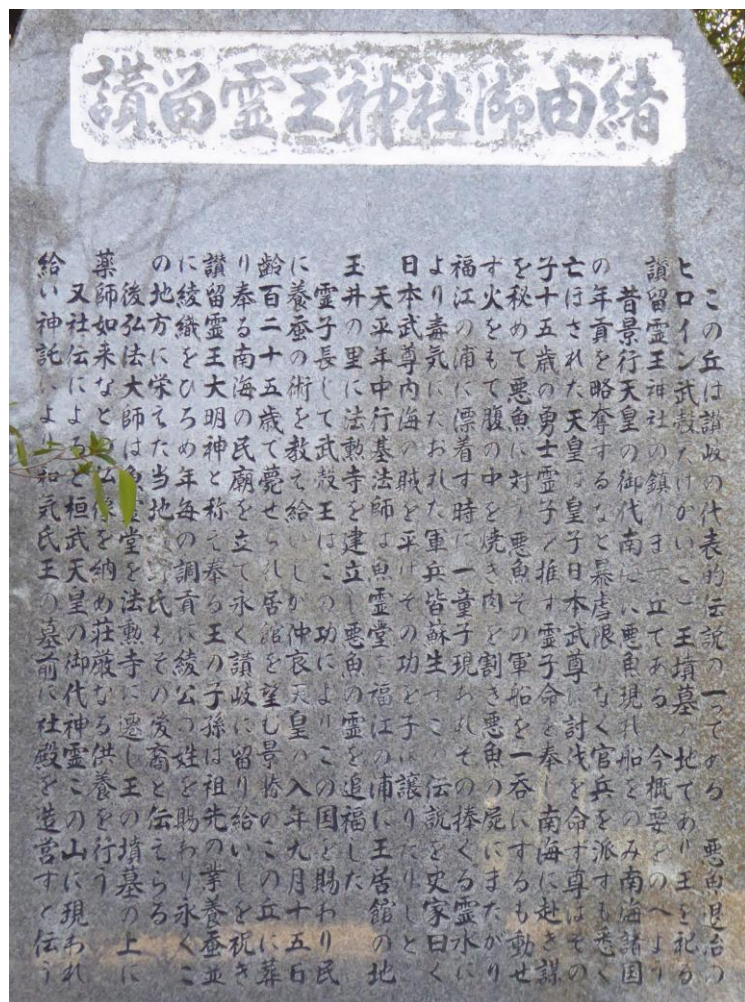 讃留霊王神社御由緒
この丘は讃岐の代表的伝説の一つである 悪魚退治の
ヒロイン武殻たけかいこ王墳墓の地であり王を祀る
讃留霊王神社の鎮ります丘である 今概要をのべよう
昔景行天皇の御代南海に悪魚現れ船をのみ南海諸国
の年貢を略奪するなど暴虐限りなく官兵を派すも悉く
亡ぼされた天皇は皇子日本武尊に討伐を命ず尊はその
子十五歳の勇士霊子を推す霊子命を奉じ南海に赴き謀
を秘めて悪魚に対す悪魚その軍船を一呑にするも動ぜ
ず火をもて腹の中を焼き肉を割き悪魚の屍にまたがり
福江の浦に漂着す時に一童子現われその捧ぐる霊水に
より毒気にたおれた軍兵皆蘇生すこの伝説を史家曰く
日本武尊内海の賊を平げその功を子に譲りたりしと
天平年中行基法師は魚霊堂を福江の浦に王居館の地
玉井の里に法勲寺を建立し悪魚の霊を追福した
霊子長じて武殻王はこの功によりこの国を賜わり民
に養蚕の術を教え給いしが仲哀天皇の八年九月十五日
齢百二十五歳で薨せられ居館を望む景勝のこの丘に葬
り奉る南海の民廟を立て永く讃岐に留り給いしを祝き
讃留霊王大明神と称え奉る王の子孫は祖先の業養蚕並
に綾織をひろめ年毎の調貢に綾公の姓を賜わり永くこ
の地方に栄えた当地 氏もその後裔と伝えらる
後弘法大師は魚霊堂を法勲寺に遷し王の墳墓の上に
薬師如来など 仏像を納め荘厳なる供養を行う
又社伝によると桓武天皇の御代神霊この山に現われ
給い神託により和気氏王の墓前に社殿を造営すと伝う